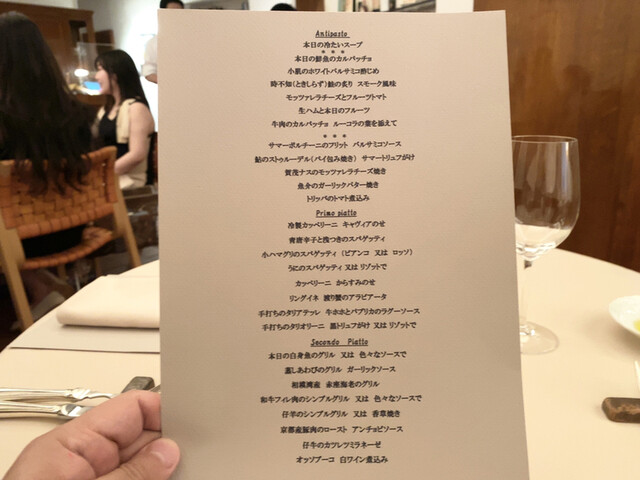 Antipasto
本日の冷たいスープ
＊＊＊
本日の鮮魚のカルパッチョ
小肌のホワイトバルサミコ酢じめ
時不知(ときしらず)鮭の炙り スモーク風味
モッツァレラチーズとフルーツトマト
生ハムと本日のフルーツ
牛肉のカルパッチョ ルーコラの葉を添えて
＊＊＊
サマーポルチーニのフリット バルサミコソース
鮎のストゥルーデル(パイ包み焼き) サマートリュフがけ
賀茂ナスのモッツァレラチーズ焼き
魚介のガーリックバター焼き
トリッパのトマト煮込み
Primo piatto
冷製カッペリーニ キャヴィアのせ
青唐辛子と浅つきのスパゲッティ
小ハマグリのスパゲッティ (ビアンコ 又は ロッソ)
うにのスパゲッティ 又は リゾットで
カッペリーニ からすみのせ
リングイネ 渡り蟹のアラビアータ
手打ちのタリアテッレ 牛ホホとパプリカのラグーソース
手打ちのタリオリーニ 黒トリュフがけ 又は リゾットで
Secondo Piatto
本日の白身魚のグリル 又は 色々なソースで
蒸しあわびのグリル ガーリックソース
相模湾産 赤座海老のグリル
和牛フィレ肉のシンプルグリル 又は 色々なソースで
仔羊のシンプルグリル 又は 香草焼き
京都産豚肉のロースト アンチョビソース
仔牛のカツレツミラネーゼ
オッソブーコ 白ワイン煮込み